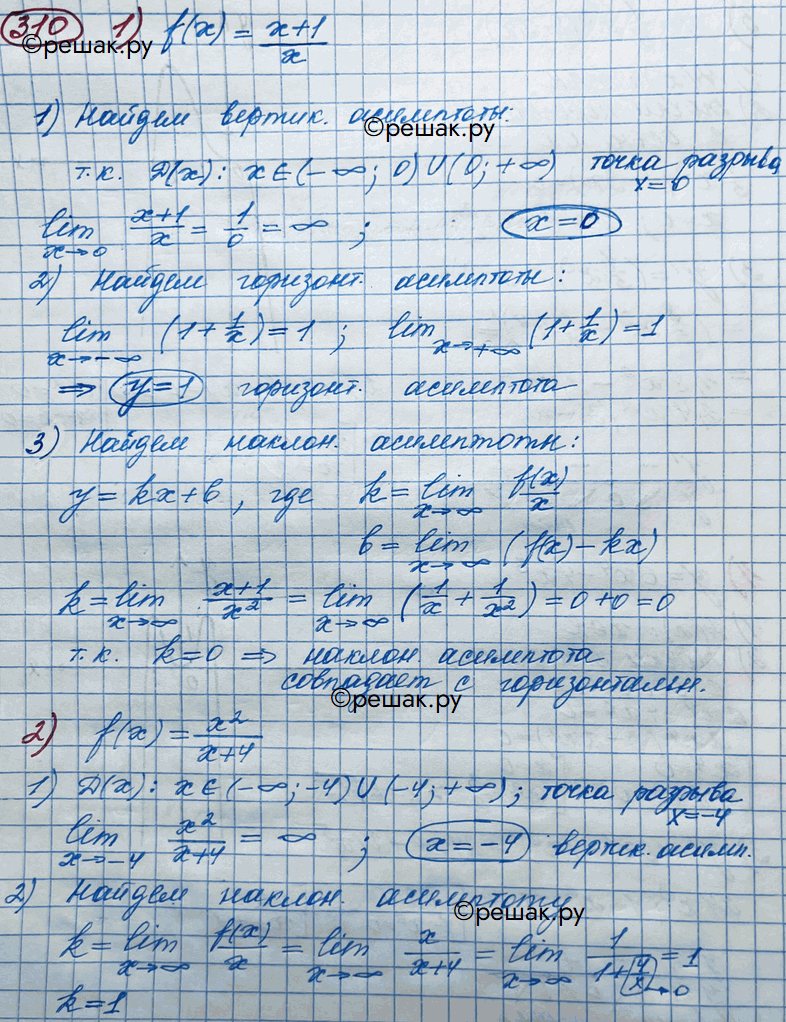 310 1) f(x) = (x+1)/x
©решак.ру
1) Найдем вертик. асимптоты:
©решак.ру
т.к. D(x): x∈(-∞; 0)∪(0; +∞) точка разрыва
x=0
lim x→0 (x+1)/x = 1/0 = ∞ ; x=0
2) Найдем горизонт. асимптоты:
lim x→-∞ (1+1/x) = 1 ; lim x→+∞ (1+1/x) = 1
⇒ y=1 горизонт. асимптота
3) Найдем наклон. асимптоты:
y = kx+b, где k = lim x→∞ f(x)/x
b = lim x→∞ (f(x) - kx)
k = lim x→∞ (x+1)/x² = lim x→∞ (1/x + 1/x²) = 0+0 = 0
т.к. k=0 ⇒ наклон. асимптота
совпадает с горизонтальн.
©решак.ру
2) f(x) = x²/(x+4)
1) D(x): x∈(-∞; -4)∪(-4; +∞); точка разрыва
x=-4
lim x→-4 x²/(x+4) = ∞ ; x=-4 вертик. асимп.
2) Найдем наклон. асимптоту
©решак.ру
k = lim x→∞ f(x)/x = lim x→∞ x/(x+4) = lim x→∞ 1/(1+4/x) = 1
→0
k=1